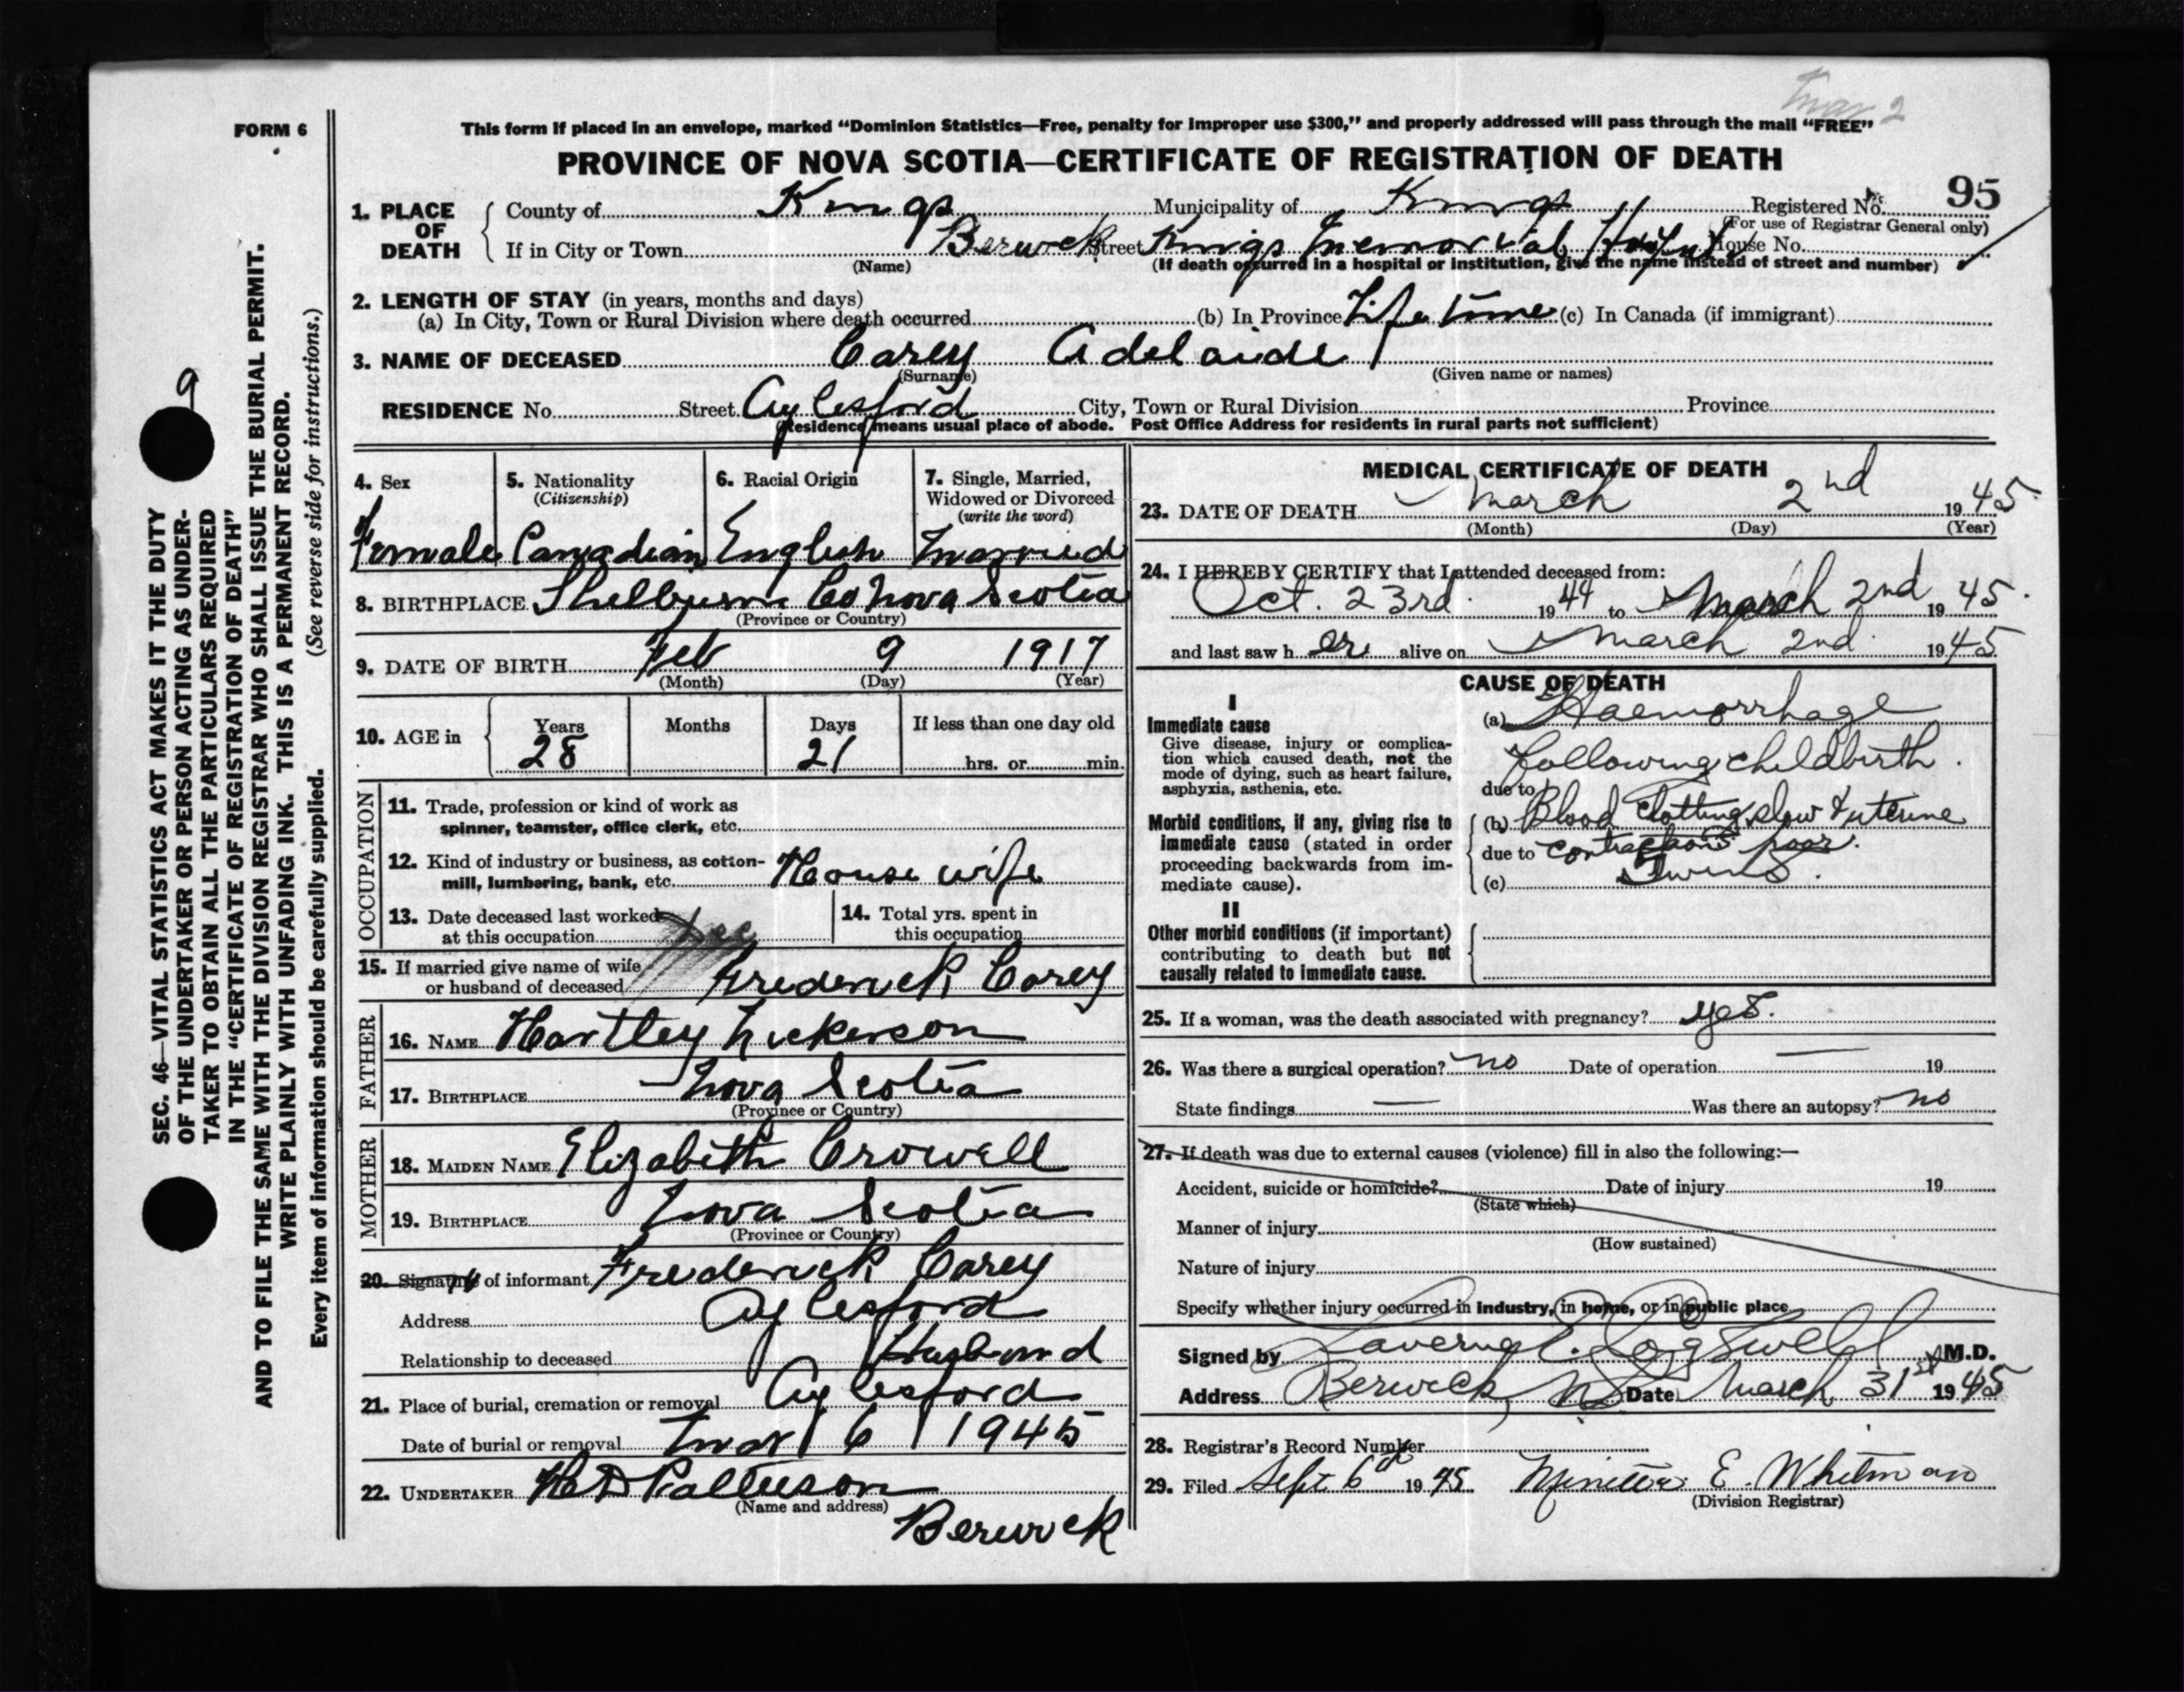 Mar 2
FORM 6
This form if placed in an envelope, marked "Dominion Statistics—Free, penalty for improper use $300," and properly addressed will pass through the mail "FREE"
PROVINCE OF NOVA SCOTIA—CERTIFICATE OF REGISTRATION OF DEATH
1. PLACE OF DEATH { County of Kings Municipality of Kings Registered No. 95
(For use of Registrar General only)
If in City or Town Berwick Street Kings Memorial House No.
(Name) (If death occurred in a hospital or institution, give the name instead of street and number)
2. LENGTH OF STAY (in years, months and days)
(a) In City, Town or Rural Division where death occurred (b) In Province Life time (c) In Canada (if immigrant)
3. NAME OF DECEASED Carey Adelaide
(Surname) (Given name or names)
RESIDENCE No. Street Aylesford City, Town or Rural Division Province
(Residence means usual place of abode. Post Office Address for residents in rural parts not sufficient)
4. Sex 5. Nationality (Citizenship) 6. Racial Origin 7. Single, Married, Widowed or Divorced (write the word)
Female Canadian English Married
8. BIRTHPLACE Shelburne Co Nova Scotia
(Province or Country)
9. DATE OF BIRTH Feb 9 1917
(Month) (Day) (Year)
10. AGE in { Years Months Days If less than one day old
28 21 hrs. or min.
OCCUPATION
11. Trade, profession or kind of work as
spinner, teamster, office clerk, etc.
12. Kind of industry or business, as cotton-
mill, lumbering, bank, etc. House wife
13. Date deceased last worked
at this occupation
14. Total yrs. spent in
this occupation
15. If married give name of wife
or husband of deceased Frederick Carey
FATHER
16. NAME Hartley Nickerson
17. BIRTHPLACE Nova Scotia
(Province or Country)
MOTHER
18. MAIDEN NAME Elizabeth Crowell
19. BIRTHPLACE Nova Scotia
(Province or Country)
20. Signature of informant Frederick Carey
Address Aylesford
Relationship to deceased Husband
21. Place of burial, cremation or removal Aylesford
Date of burial or removal Mar 6 1945
22. UNDERTAKER H D Patterson
(Name and address)
Berwick
MEDICAL CERTIFICATE OF DEATH
23. DATE OF DEATH March 2nd 1945
(Month) (Day) (Year)
24. I HEREBY CERTIFY that I attended deceased from:
Oct. 23rd 1944 to March 2nd 1945.
and last saw h er alive on March 2nd 1945
CAUSE OF DEATH
I
Immediate cause
Give disease, injury or complica-
tion which caused death, not the
mode of dying, such as heart failure,
asphyxia, asthenia, etc.
(a) Haemorrhage
following childbirth.
due to
Morbid conditions, if any, giving rise to
immediate cause (stated in order
proceeding backwards from im-
mediate cause).
(b) Blood Clotting slow & uterine
due to contractions poor.
(c) Twins.
II
Other morbid conditions (if important)
contributing to death but not
causally related to immediate cause.
25. If a woman, was the death associated with pregnancy? yes.
26. Was there a surgical operation? no Date of operation — 19
State findings — Was there an autopsy? no
27. If death was due to external causes (violence) fill in also the following:—
Accident, suicide or homicide? Date of injury 19
(State which)
Manner of injury
(How sustained)
Nature of injury
Specify whether injury occurred in industry, in home, or in public place
Signed by Laverne E. Cogswell M.D.
Address Berwick, NS Date March 31st 1945
28. Registrar's Record Number
29. Filed Sept 6th 1945 E. Whitman
(Division Registrar)
9
SEC. 46—VITAL STATISTICS ACT MAKES IT THE DUTY
OF THE UNDERTAKER OR PERSON ACTING AS UNDER-
TAKER TO OBTAIN ALL THE PARTICULARS REQUIRED
IN THE "CERTIFICATE OF REGISTRATION OF DEATH"
AND TO FILE THE SAME WITH THE DIVISION REGISTRAR WHO SHALL ISSUE THE BURIAL PERMIT.
WRITE PLAINLY WITH UNFADING INK. THIS IS A PERMANENT RECORD.
Every item of information should be carefully supplied. (See reverse side for instructions.)